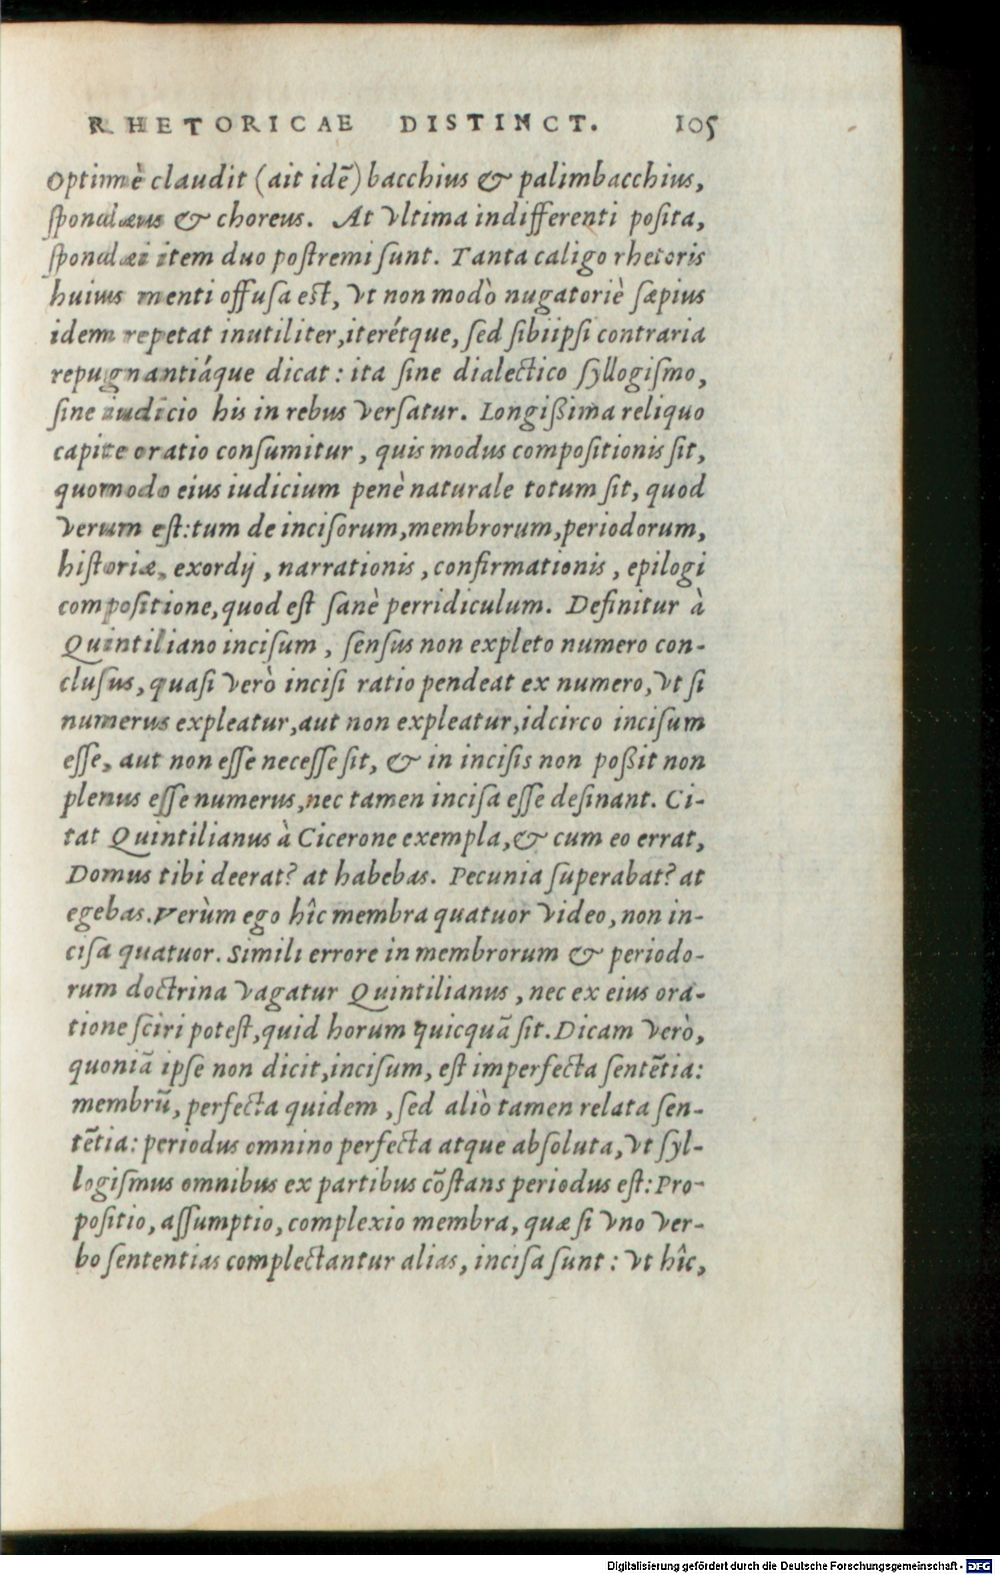 RHETORICAE DISTINCT. 105
Optimè claudit (ait idē) bacchius & palimbacchius,
spondæus & choreus. At vltima indifferenti posita,
spondæi item duo postremi sunt. Tanta caligo rhetoris
huius menti offusa est, vt non modò nugatoriè sæpius
idem repetat inutiliter, iterétque, sed sibiipsi contraria
repugnantiáque dicat: ita sine dialectico syllogismo,
sine iudicio his in rebus versatur. Longißima reliquo
capite oratio consumitur, quis modus compositionis sit,
quomodo eius iudicium penè naturale totum sit, quod
verum est: tum de incisorum, membrorum, periodorum,
historiæ, exordij, narrationis, confirmationis, epilogi
compositione, quod est sanè perridiculum. Definitur à
Quintiliano incisum, sensus non expleto numero con-
clusus, quasi verò incisi ratio pendeat ex numero, vt si
numerus expleatur, aut non expleatur, idcirco incisum
esse, aut non esse necesse sit, & in incisis non poßit non
plenus esse numerus, nec tamen incisa esse desinant. Ci-
tat Quintilianus à Cicerone exempla, & cum eo errat,
Domus tibi deerat? at habebas. Pecunia superabat? at
egebas. Verùm ego hîc membra quatuor video, non in-
cisa quatuor. Simili errore in membrorum & periodo-
rum doctrina vagatur Quintilianus, nec ex eius ora-
tione sciri potest, quid horum quicquā sit. Dicam verò,
quoniā ipse non dicit, incisum, est imperfecta sentētia:
membrū, perfecta quidem, sed aliò tamen relata sen-
tētia: periodus omnino perfecta atque absoluta, vt syl-
logismus omnibus ex partibus cōstans periodus est: Pro-
positio, assumptio, complexio membra, quæ si vno ver-
bo sententias complectantur alias, incisa sunt: vt hîc,
Digitalisierung gefördert durch die Deutsche Forschungsgemeinschaft - DFG